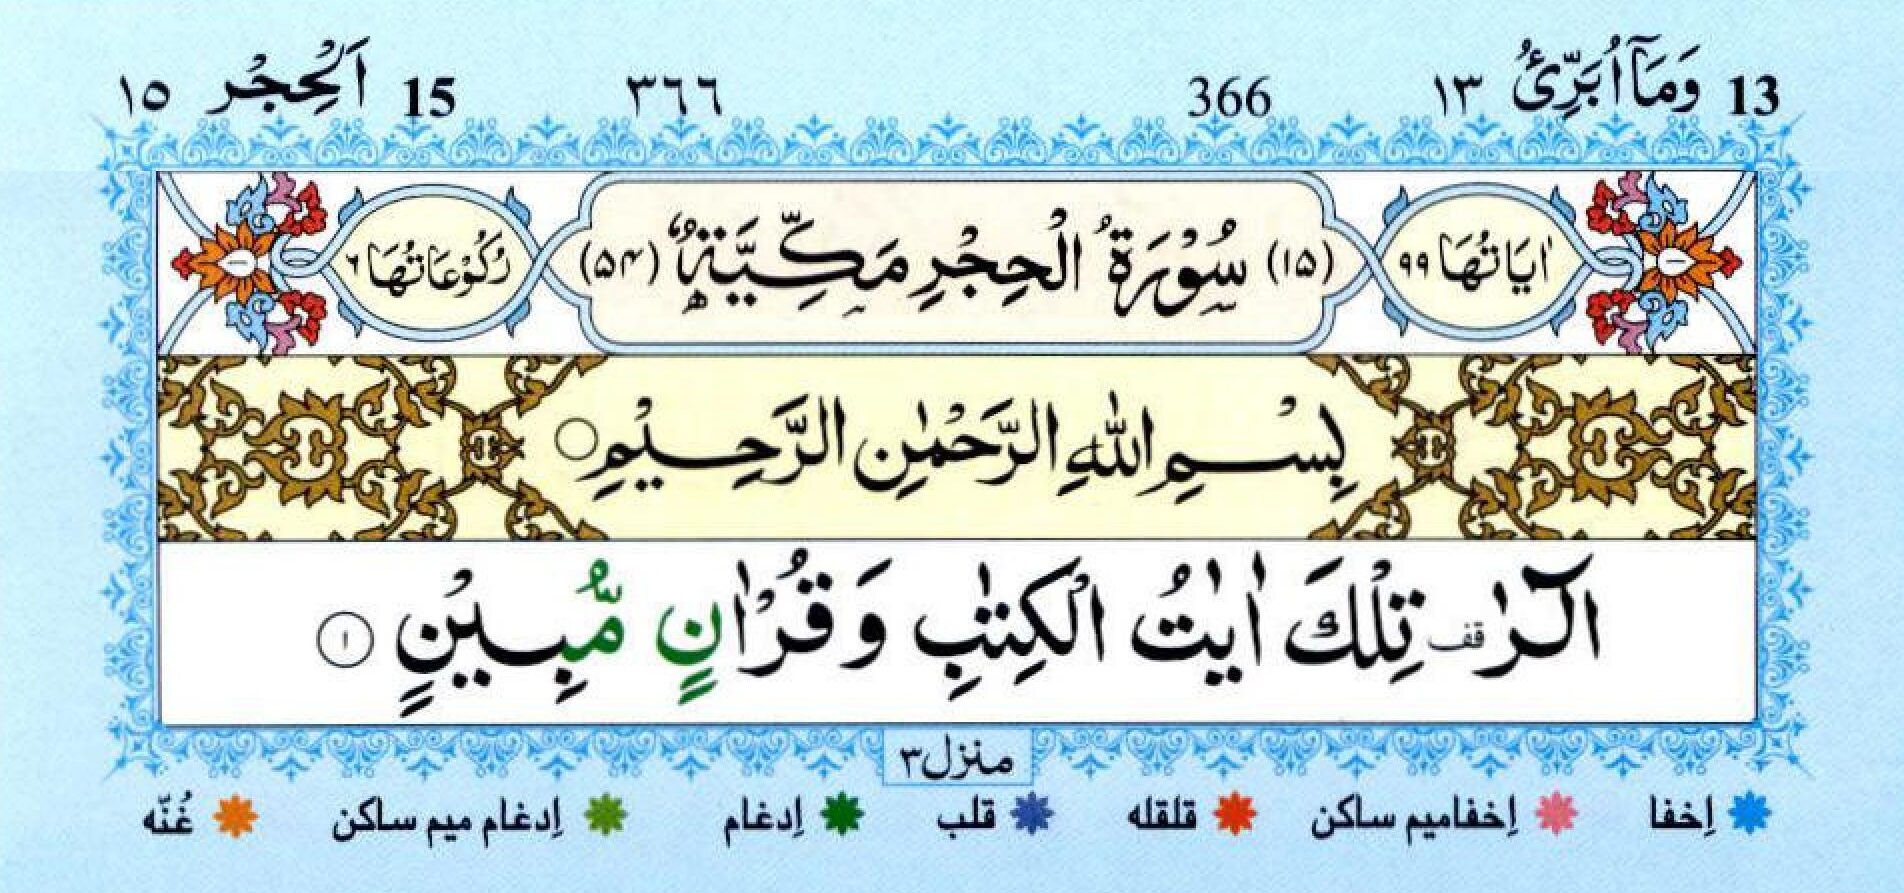 13 وَمَاۤ اُبَرِّئُ ١٣ 366 ٣٦٦ 15 اَلْحِجْر ١٥
اٰيَاتُهَا ٩٩ (١٥) سُوْرَةُ الْحِجْرِ مَكِّيَّةٌ (٥٤) رُكُوْعَاتُهَا ٦
بِسْمِ اللّٰهِ الرَّحْمٰنِ الرَّحِيْمِ
الٓرٰ ࣞ تِلْكَ اٰيٰتُ الْكِتٰبِ وَ قُرْاٰنٍ مُّبِيْنٍ ١
منزل ٣
اِخفا اِخفامیم ساکن قلقله قلب اِدغام اِدغام میم ساکن غُنّه